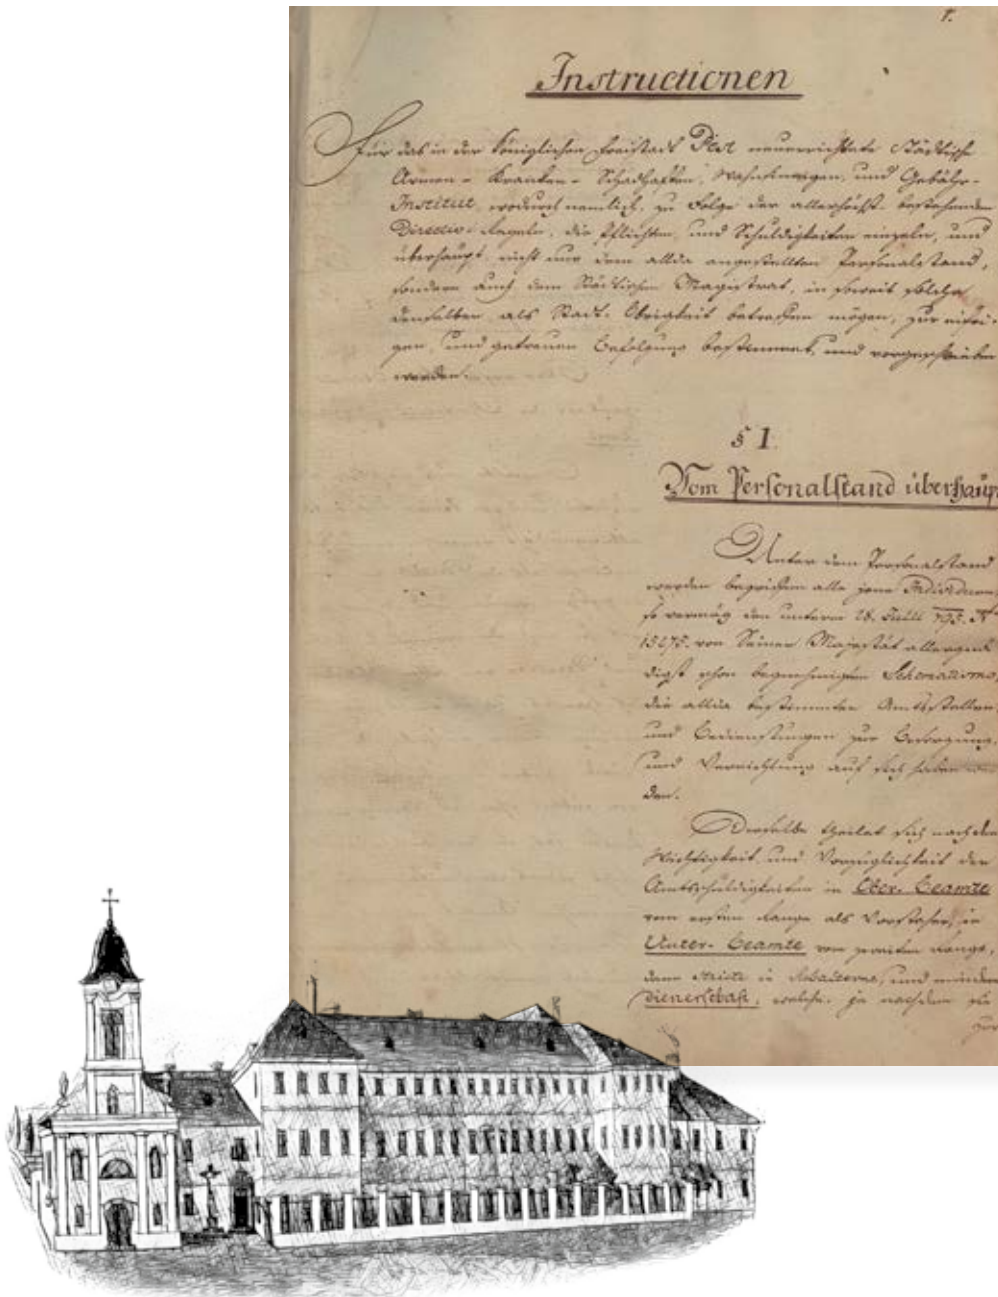 1.
Instructionen
Für das in der Königlichen Freistadt Pest neuerrichtete Städtische
Armen- Kranken- Schadhaften, Wahnsinnigen, und Gebähr-
Institut, wodurch nemlich, zu Folge der allerhöchst bestehenden
Directiv-Regeln, die Pflichten, und Schuldigkeiten einzeln, und
überhaupt, nicht nur dem allda angestellten Personalstand,
sondern auch dem Städtischen Magistrat, in soweit solche
denselben als Stadt-Obrigkeit betreffen mögen, zur eifri-
gen, und getreuen Befolgung bestimmet, und vorgeschrieben
werden.
§ 1.
Vom Personalstand überhaup
Unter dem Personalstand
werden begriffen alle jene Individuen
so vermög den unterm 28. Julii 795. N
15275. von Seiner Majestät allergnä
digst schon begnehmigten Schematismo,
die allda bestimmten Amtsstellen,
und Bedienstungen zur Besorgung,
und Verrichtung auf sich haben
den.
Derselbe theilet sich nach der
Wichtigkeit, und Vorzüglichkeit der
Amtsschuldigkeiten in Ober-Beamte
vom ersten Range als Vorsteher, in
Unter-Beamte vom zweiten Range,
dann und mindere
Dienerschaft, welche, je nachdem sie